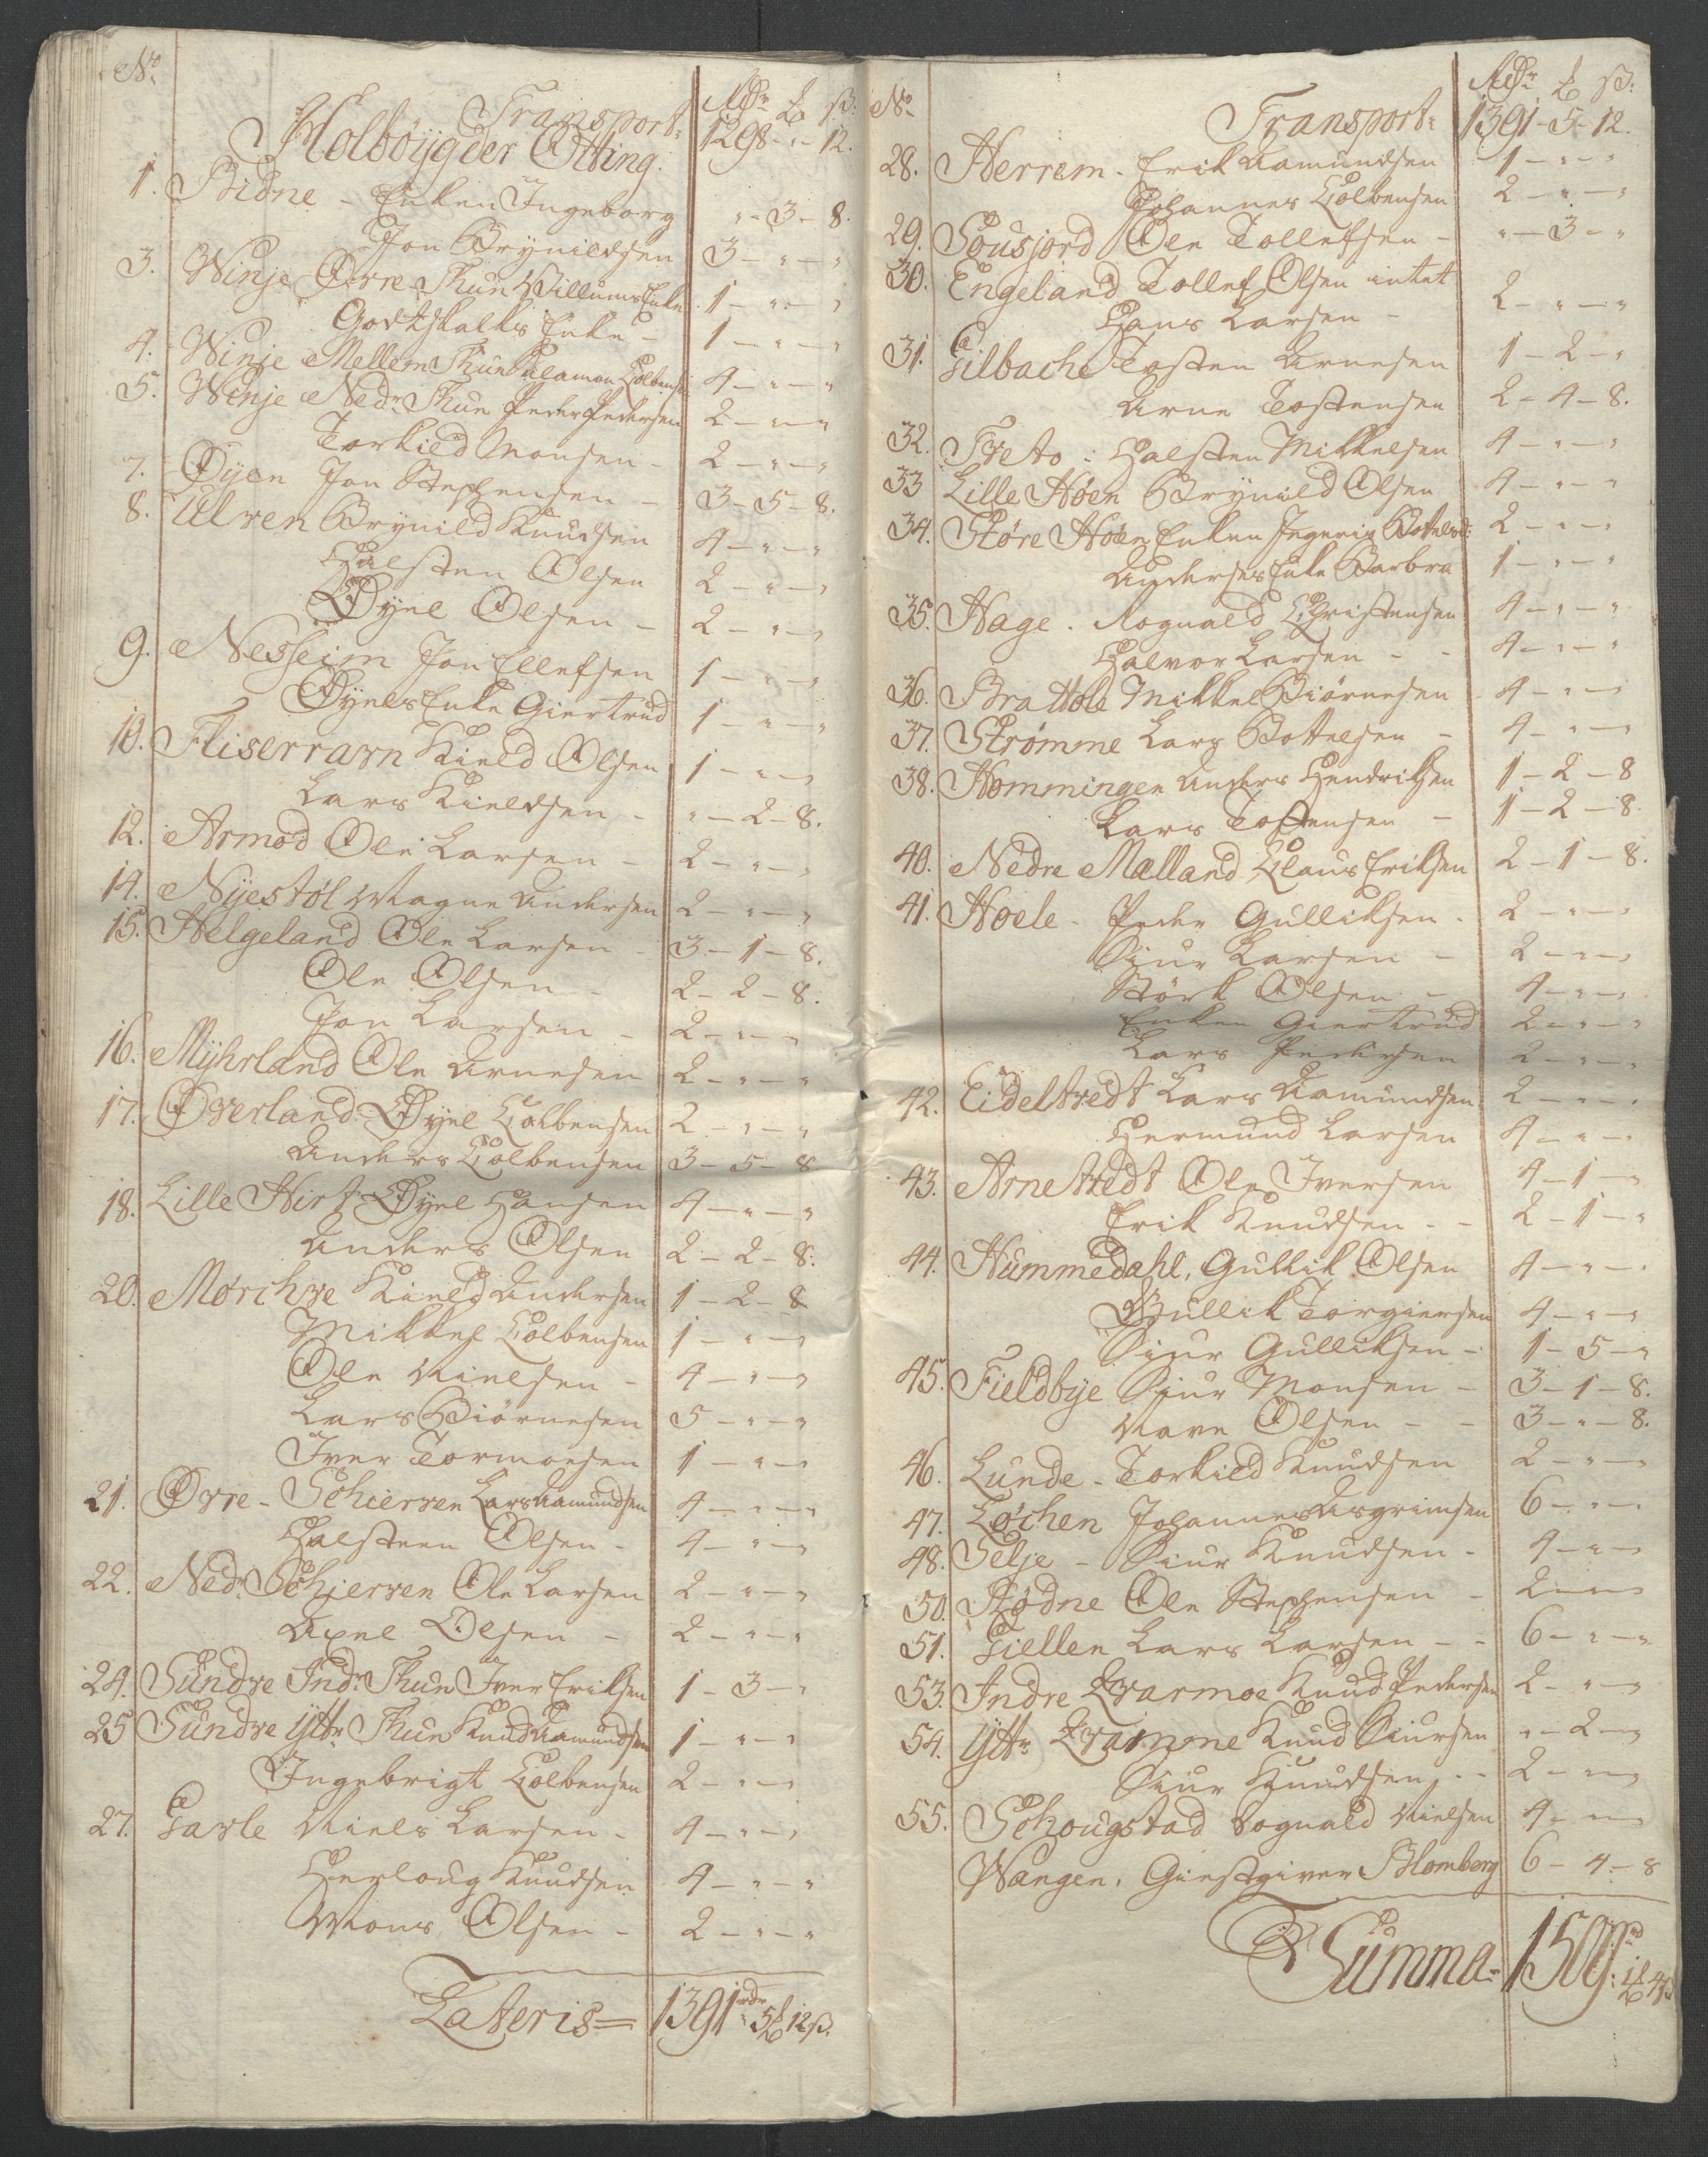 No
Rdr ℔ ß:
Transport: 1298 - " - 12.
Holbøygder Otting.
1. Bidne - Enken Ingeborg " - 3 - 8.
Jon Brynildsen 3 - " - "
3. Winje Øvre Thun Willums Enke 1 - " - "
Godtskalks Enke - 1 - " - "
4. Winje Mellem Thun Salamon Colbens: 4 - " - "
5. Winje Nedr Thun Peder Pedersen 2 - " - "
Torkild Monsen - 2 - " - "
7. Øyen Jon Stephensen - 3 - 5 - 8.
8. Ulven Brynild Knudsen 4 - " - "
Halsten Olsen 2 - " - "
Øyel Olsen - 2 - " - "
9. Nesheim Jon Ellefsen 1 - " - "
Øyels Enke Giertrud 1 - " - "
10. Fliserravn Kield Olsen 1 - " - "
Lars Kieldsen - " - 2 - 8.
12. Armod Ole Larsen - 2 - " - "
14. Nyestøl Magne Andersen 2 - " - "
15. Helgeland Ole Larsen - 3 - 1 - 8.
Ole Olsen - 2 - 2 - 8.
Jon Larsen - 2 - " - "
16. Myhrland Ole Arnesen 2 - " - "
17. Øverland Øyel Colbensen 2 - " - "
Anders Colbensen 3 - 5 - 8
18. Lille Hirt Øyel Hansen 4 - " - "
Anders Olsen 2 - 2 - 8.
20. Mørchve Kield Andersen 1 - 2 - 8
Mikkel Colbensen 1 - " - "
Ole Nielsen - 4 - " - "
Lars Biørnesen 5 - " - "
Iver Tormoesen 1 - " - "
21. Øvre - Schierven Lars Aamundsen 4 - " - "
Halsteen Olsen - 4 - " - "
22. Nedr Schierven Ole Larsen 2 - " - "
Axel Olsen - 2 - " - "
24. Sundve Indr Thun Iver Eriksen 1 - 3 - "
25 Sundve Yttr Thun Knud Aamundsen 1 - " - "
Ingebrigt Colbensen 2 - " - "
27. Giavle Niels Larsen - 4 - " - "
Herloug Knudsen 4 - " - "
Mons Olsen - 2 - " - "
Lateris = 1391 rdr 5 ℔ 12 ß.
No
Rdr ℔ ß:
Transport: 1391 - 5 - 12.
28. Herrem - Erik Aamundsen 1 - " - "
Johannes Colbensen 2 - " - "
29. Sousjord Ole Tollefsen - " - 3 - "
30. Engeland Tollef Olsen intet
Hans Larsen - 2 - " - "
31. Gilbache Tosten Arnesen 1 - 2 - "
Arne Tostensen 2 - 4 - 8.
32. Tveto : Halsten Mikkelsen 4 - " - "
33 Lille Høen Brynild Olsen 4 - " - "
34. Støre Høen Enken Ingerig Bottelsd: 2 - " - "
Anderses Enke Barbra 1 - " - "
35. Hage . Rognald Christensen 4 - " - "
Halvor Larsen - - 4 - " - "
36. Brattole Mikkel Biørnesen 4 - " - "
37. Strømme Lars Bottelsen - 4 - " - "
38. Hommingen Anders Hendriksen 1 - 2 - 8
Lars Tostensen - 1 - 2 - 8.
40. Nedre Mælland Claus Eriksen 2 - 1 - 8.
41. Hoele - Peder Gulliksen - 2 - " - "
Siur Larsen - 2 - " - "
Størk Olsen - 4 - " - "
Enken Giertrud 2 - " - "
Lars Pedersen 2 - " - "
42. Eideltvedt Lars Aamundsen 2 - " - "
Hermund Larsen 4 - " - "
43. Arnetvedt Ole Iversen 4 - 1 - "
Erik Knudsen - - 2 - 1 - "
44. Hummedahl, Gullik Olsen 4 - " - "
Gullik Torgiersen 4 - " - "
Siur Gulliksen - 1 - 5 - "
45. Fieldbye Siur Monsen - 3 - 1 - 8.
Nave Olsen - - 3 - " - 8.
46. Lunde - Torkild Knudsen 2 - " - "
47. Løchen Johannes Asgrimsen 6 - " - "
48. Selje - Siur Knudsen - 4 - " - "
50. Stødne Ole Stephensen - 2 - " - "
51. Giellen Lars Larsen - - 6 - " - "
53. Indre Qvarmoe Knud Pedersen 2 - " - "
54. Yttr Qvamme Knud Siursen " - 2 - "
Siur Knudsen - - 2 - " - "
55. Schougstad Rognald Nielsen 4 - " - "
Wangen, Giestgiver Blomberg 6 - 4 - 8
Summa - 1509 rd 1 ℔ 4 ß